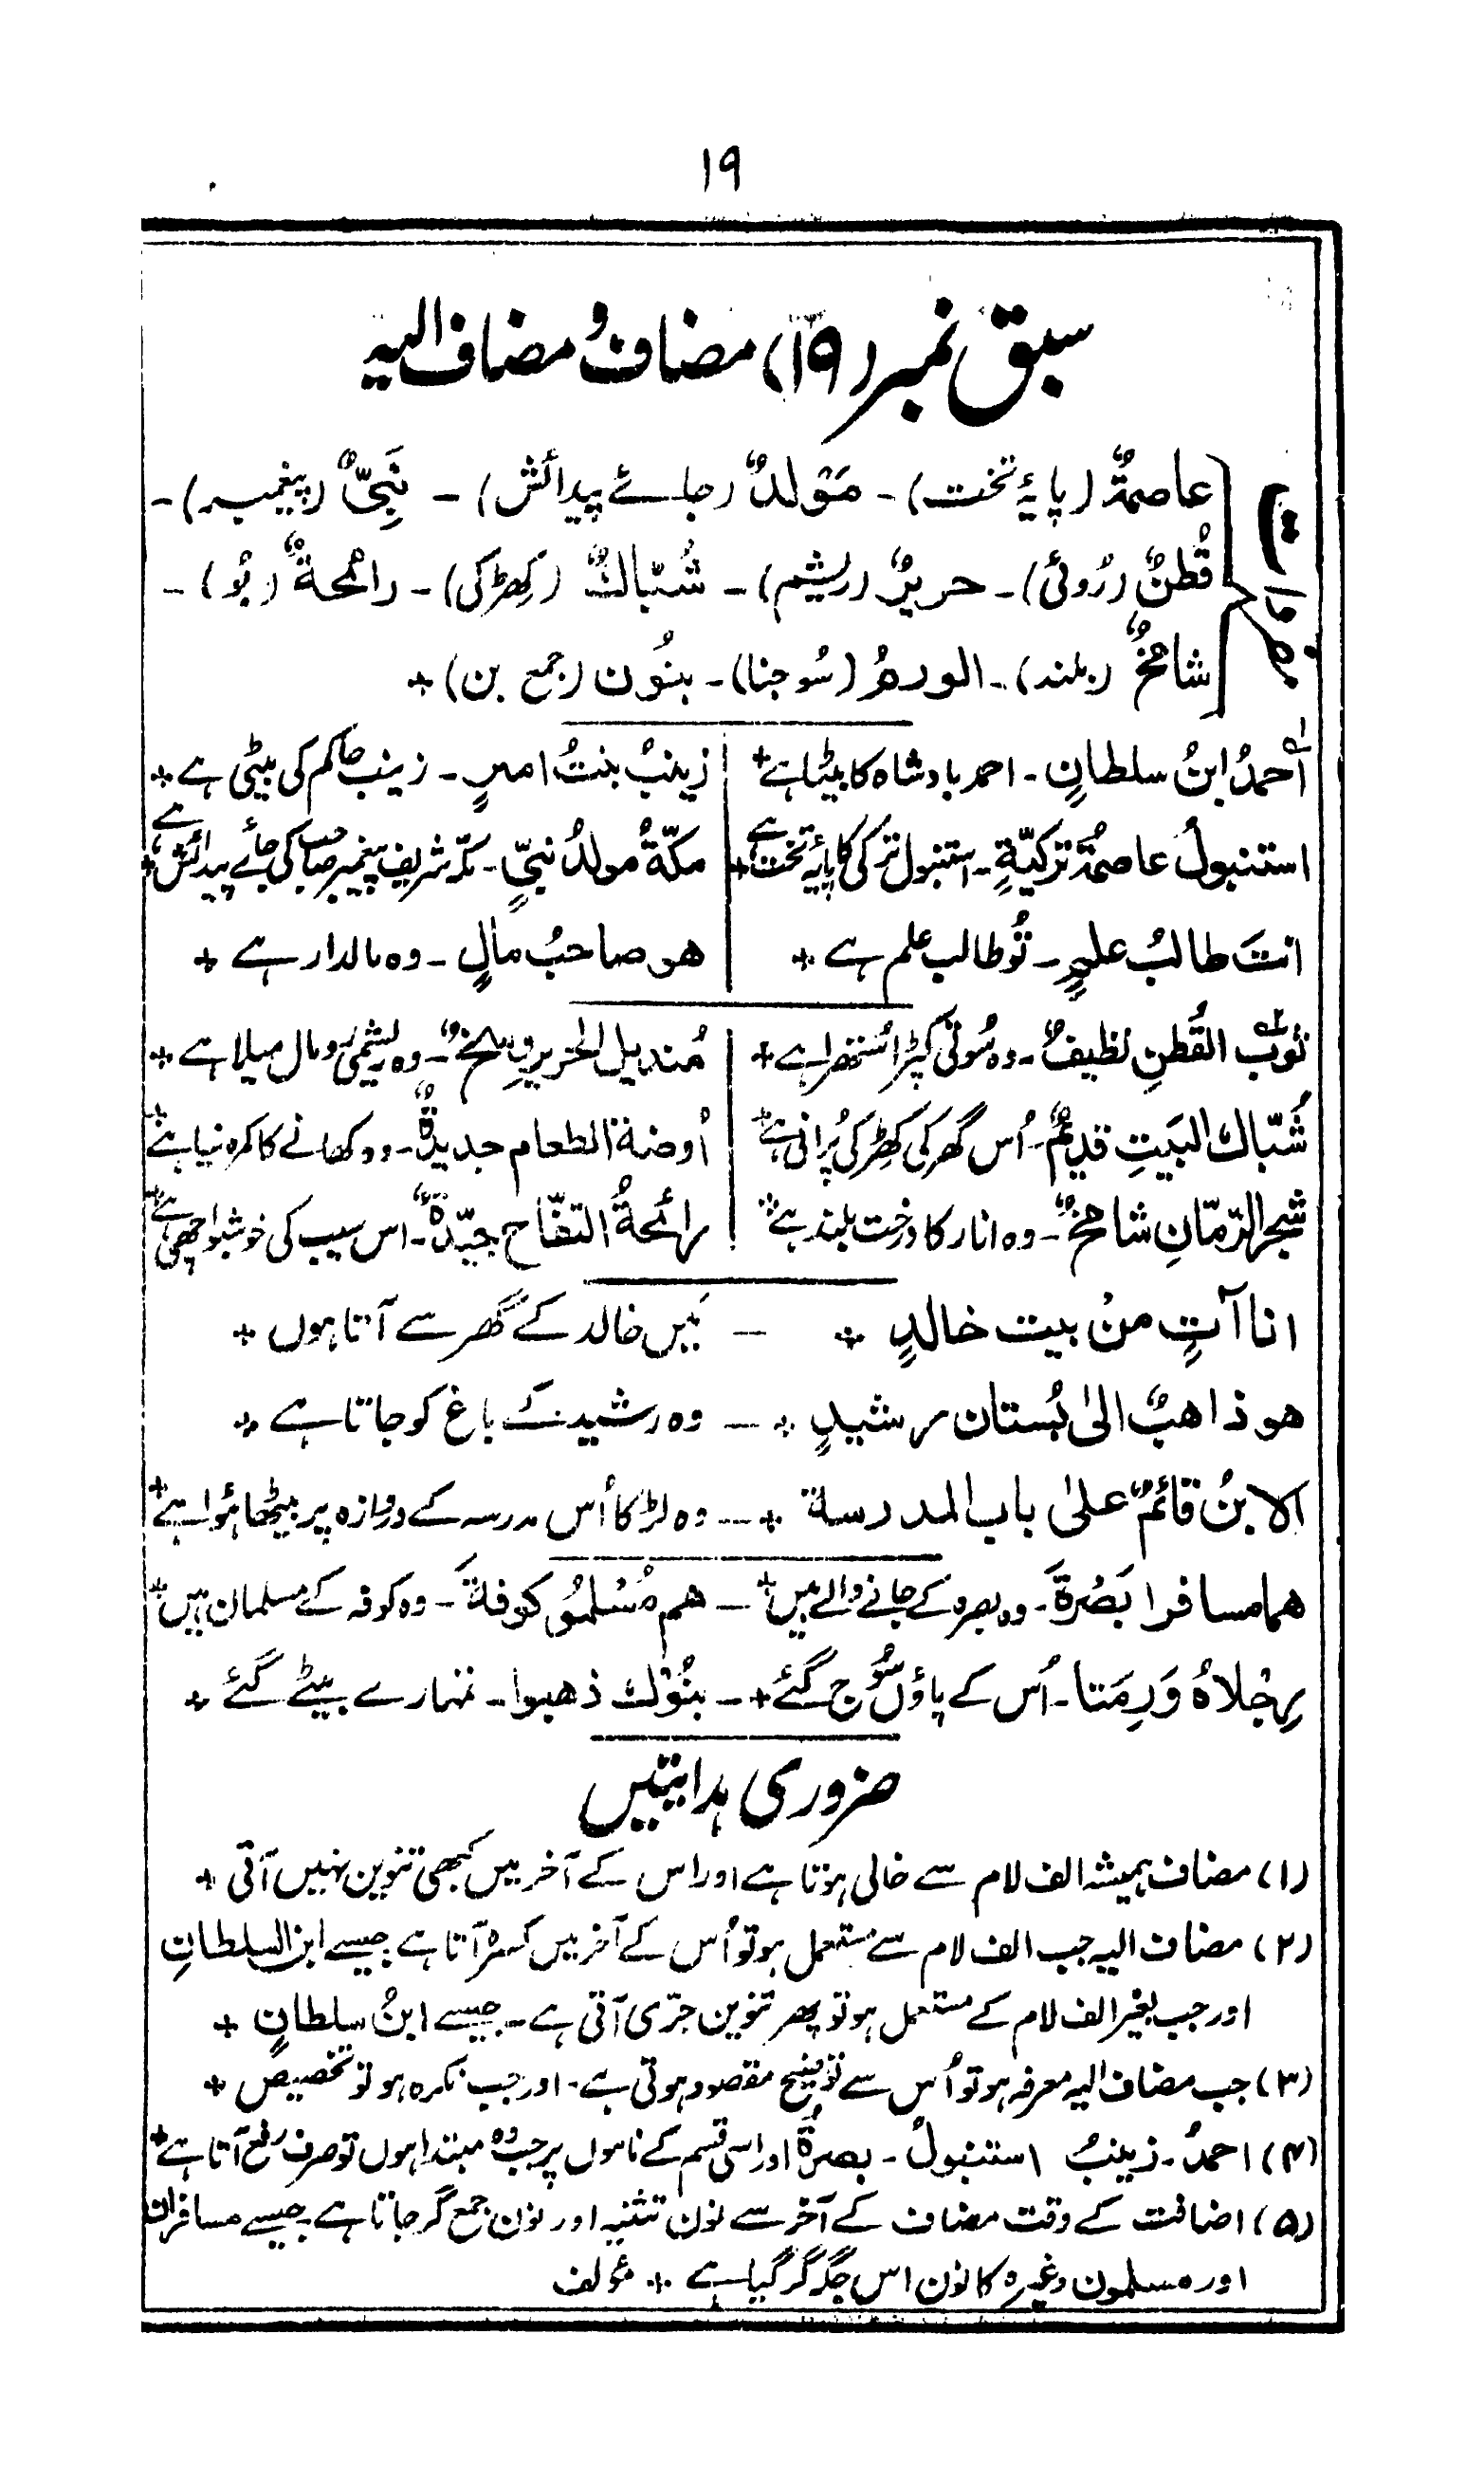 ۱۹
سبق نمبر (۱۹) مضاف و مضاف الیہ
مفردات
عاصمةٌ (پایۂ تخت) - مَوْلدٌ (جائے پیدائش) - نَبِیٌّ (پیغمبر) -
قُطنٌ (رُوئی) - حریرٌ (ریشم) - شُبّاكٌ (کھِڑکی) - رائحةٌ (بُو) -
شامخٌ (بلند) - الورمُ (سُوجنا) - بنُون (جمع بن) +
احمدُ ابنُ سلطانٍ - احمد بادشاہ کا بیٹا ہے + زینبُ بنتُ امیرٍ - زینب حاکم کی بیٹی ہے +
استنبولُ عاصمةُ ترکیّةٍ - استنبول ترکی کا پایۂ تخت ہے + مکّةُ مولدُ نبیٍّ - مکّہ شریف پیغمبر صاحب کی جائے پیدائش ہے +
انتَ طالبُ علمٍ - تُو طالب علم ہے + هو صاحبُ مالٍ - وہ مالدار ہے +
ثوبُ القُطنِ نظیفٌ - وہ سُوتی کپڑا ستھرا ہے + مُندیل الحریرِ وسخٌ - وہ ریشمی رومال میلا ہے +
شُبّاك البَیتِ قدیمٌ - اُس گھر کی کھِڑکی پُرانی ہے + اُوضةُ الطعام جدیدةٌ - وہ کھانے کا کمرہ نیا ہے +
شجر الرّمّانِ شامخٌ - وہ انار کا درخت بلند ہے + رائحةُ التفّاحِ جیّدةٌ - اس سیب کی خوشبو اچھی ہے +
انا آتٍ منْ بیت خالدٍ + - مَیں خالد کے گھر سے آتا ہوں +
هو ذاهبٌ الیٰ بُستان رشیدٍ + - وہ رشید کے باغ کو جاتا ہے +
الابنُ قائمٌ علیٰ باب المدرسة + - وہ لڑکا اُس مدرسہ کے دروازہ پر بیٹھا ہُوا ہے +
هما مسافرا بَصْرةَ - وہ بصرہ کے جانے والے ہیں + - هم مُسْلمُو کوفةَ - وہ کوفہ کے مسلمان ہیں +
رِجْلاهُ وَرِمَتا - اُس کے پاؤں سُوج گئے + - بنُوْكَ ذهبوا - تمہارے بیٹے گئے +
ضروری ہدایتیں
(۱) مضاف ہمیشہ الف لام سے خالی ہوتا ہے اور اس کے آخر میں کبھی تنوین نہیں آتی +
(۲) مضاف الیہ جب الف لام سے مستعمل ہو تو اُس کے آخر میں کسرہ آتا ہے جیسے ابن السلطانِ
اور جب بغیر الف لام کے مستعمل ہو تو پھر تنوین جرّی آتی ہے - جیسے ابنُ سلطانٍ +
(۳) جب مضاف الیہ معرفہ ہو تو اُس سے توضیح مقصود ہوتی ہے - اور جب نکرہ ہو تو تخصیص +
(۴) احمدُ - زینبُ استنبولُ - بصرةُ اور اسی قسم کے ناموں پر جب وہ مبتدا ہوں تو صرف رفع آتا ہے +
(۵) اضافت کے وقت مضاف کے آخر سے نون تثنیہ اور نون جمع گر جاتا ہے - جیسے مسافران
اور مسلمون وغیرہ کا نون اس جگہ گر گیا ہے + مؤلف